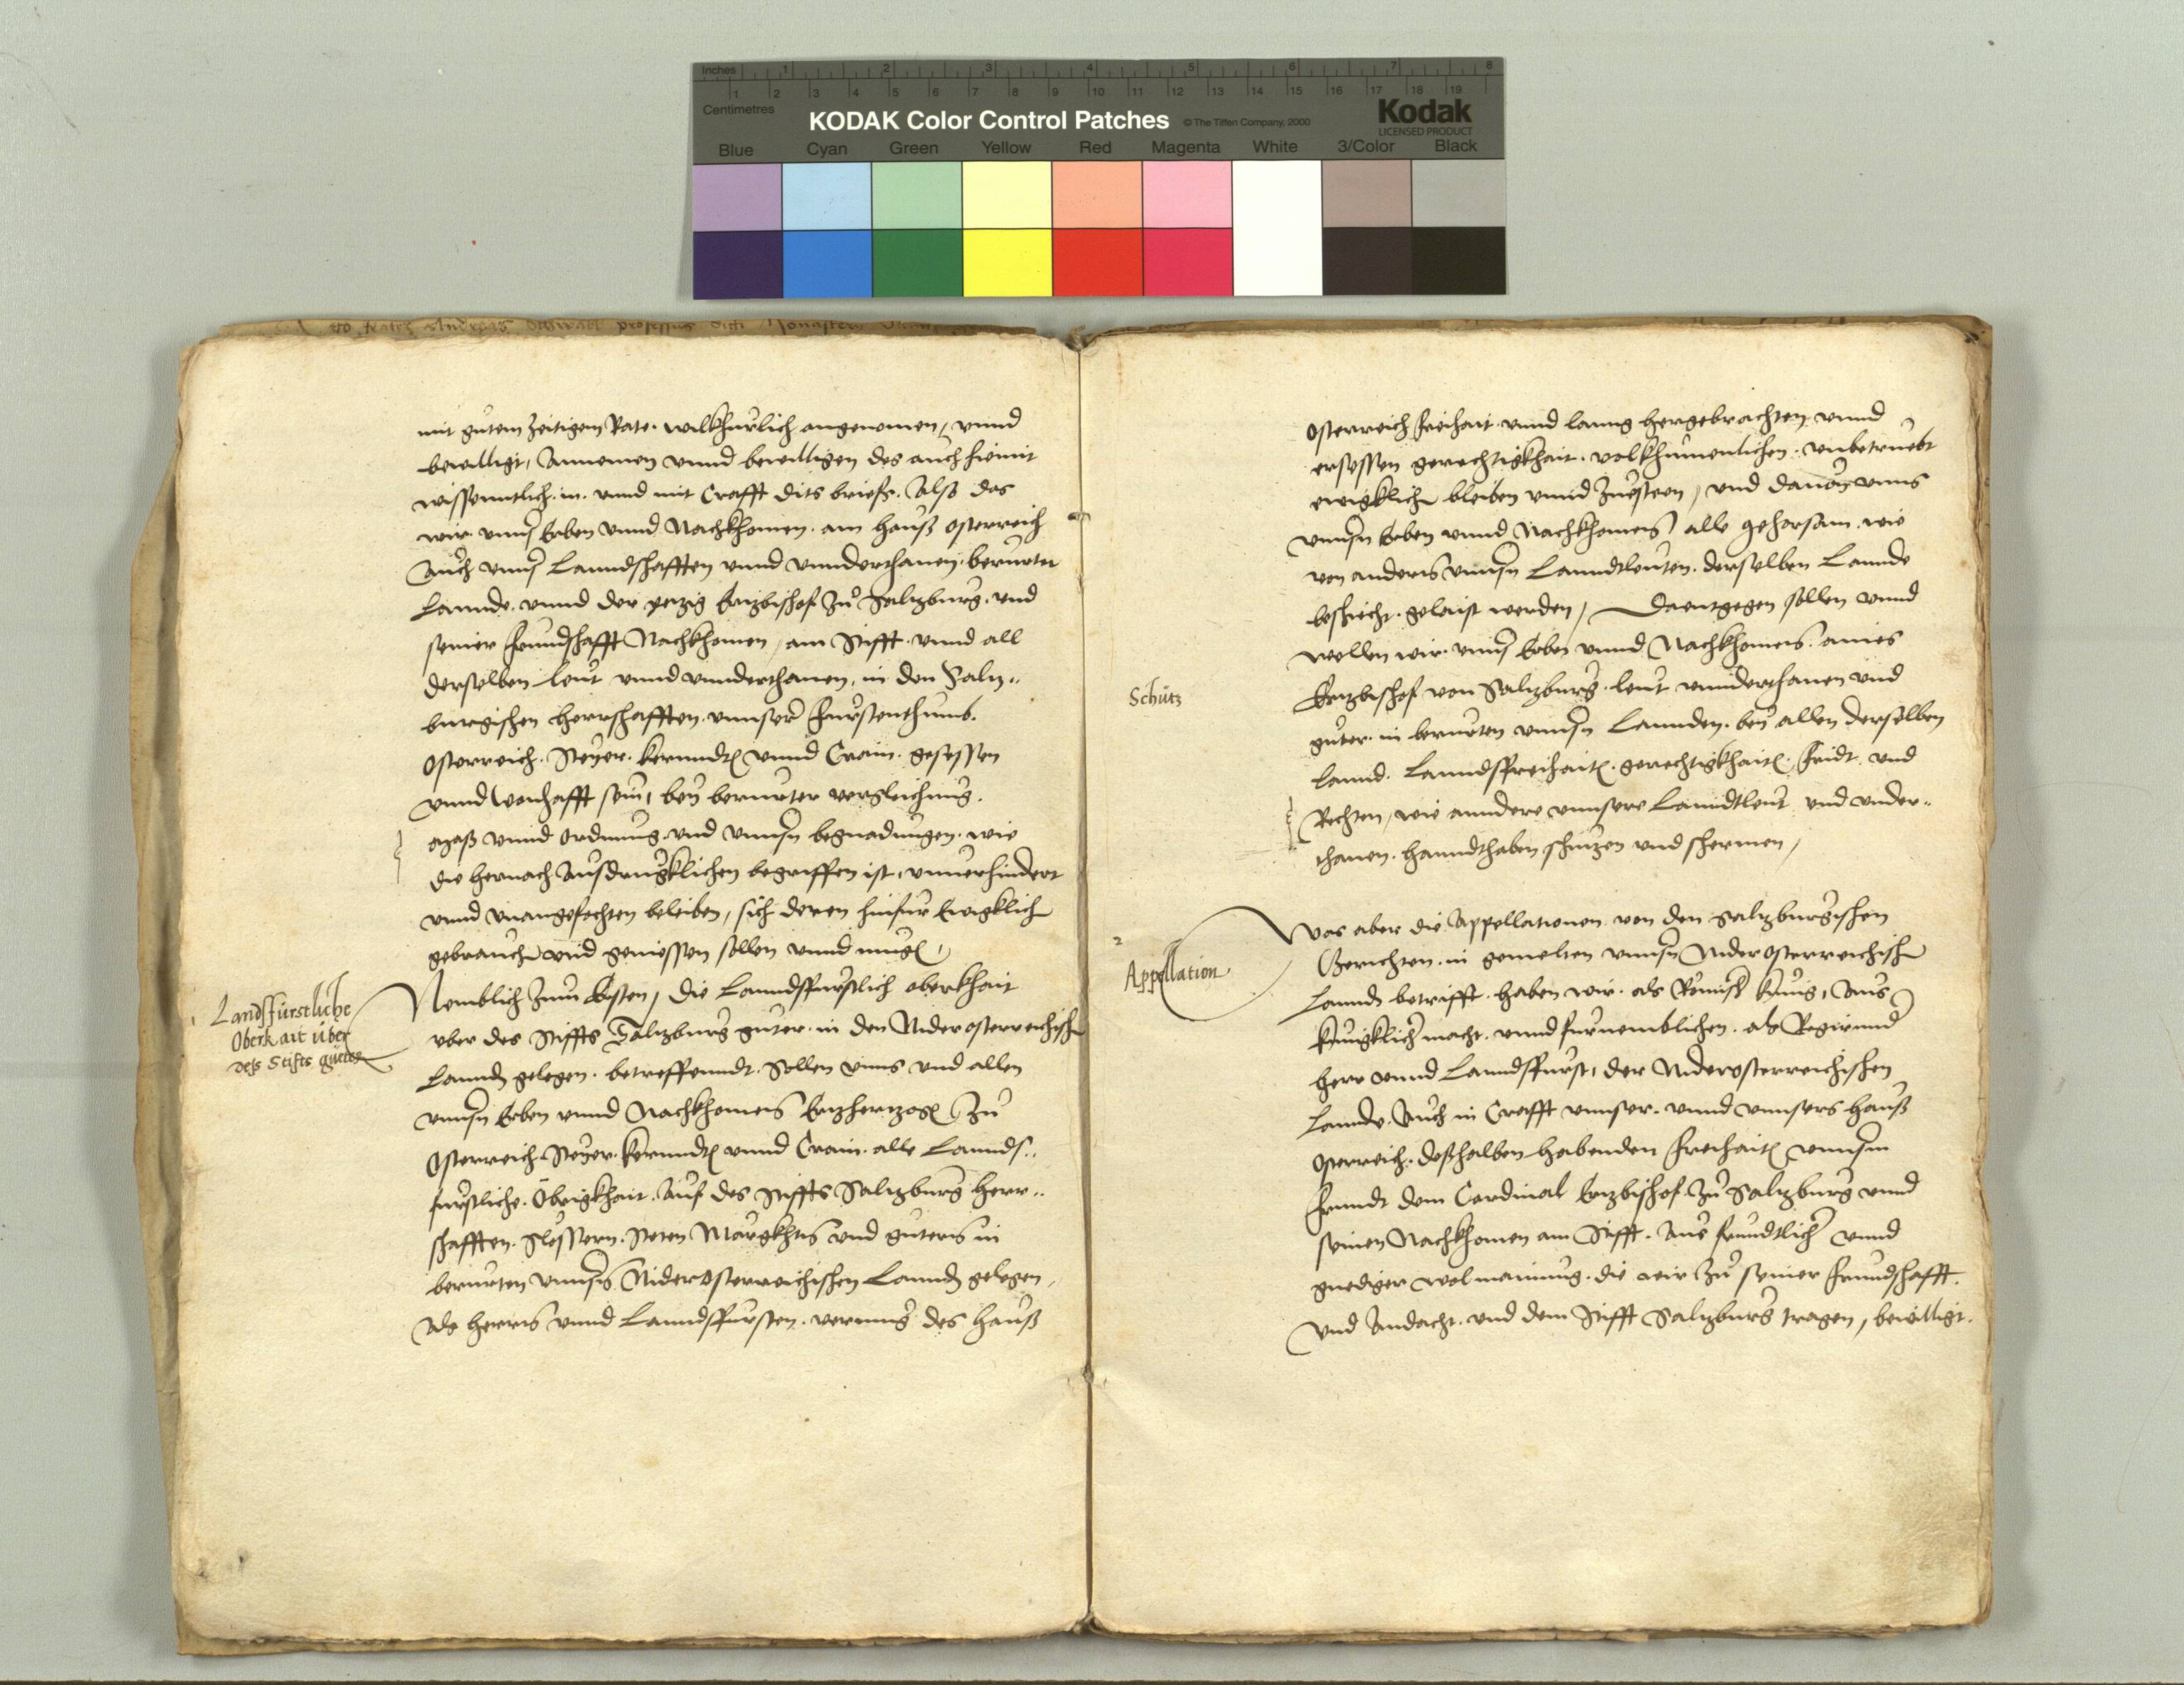 Inches 1 2 3 4 5 6 7 8
Centimetres 1 2 3 4 5 6 7 8 9 10 11 12 13 14 15 16 17 18 19
KODAK Color Control Patches © The Tiffen Company, 2000 Kodak
LICENSED PRODUCT
Blue Cyan Green Yellow Red Magenta White 3/Color Black
mit gutem Zeitigem Rate. wilkhurlich angenomen, vnnd
bewilligt, Annemen vnnd bewilligen des auch hiemit
wissenntlich. in. vnnd mit Crafft dits briefs. Also das
wir. vnns Erben vnnd Nachkhomen. am hauß osterreich
Auch vnns Lanndschafften vnnd vnnderthanen. berurter
Lannde. vnnd der yezig Erzbischof zu Salzburg. vnd
seiner frundschafft Nachkhomen, am Stifft. vnnd all
derselben leut vnnd vnnderthanen, in den Salz..
burgischen herrschafften. vnnserer furstenthumb.
Osterreich. Steyer. kernndten vnnd Crain. gesessen
vnnd wonhafft sein, bey berurter vergleichung.
maß vnnd ordnung. vnd vnnsern begnadungen. wie
die hernach Ausdrugklichen begriffen ist, vnuerhindert
vnnd vnangefochten beleiben, sich deren hinfur Ewigklich
gebrauchen vnd geniessen sollen vnnd mugen,
Landsfürstliche
Oberkait über
deß Stifts güeter
Nemblich zum Ersten, die Lanndsfurstlich oberkhait
vber des Stiffts Salzburg guter. in den Niderosterreichischen
Lannden gelegen. betreffenndt. Sollen vnns vnd allen
vnnsern Erben vnnd Nachkhomen Erzhertzogen Zu
Osterreich. Steyer. kernndten vnnd Crain. alle Lannds..
furstliche. Obrigkhait. Auf des Stiffts Salzburg herr..
schafften. Slossern. Steten Margkhten vnd gutern in
berurten vnnsern Niderosterreichischen Lannden gelegen,
als herrn vnnd Lanndsfursten. vermug des hauß
Osterreich freihait. vnnd lanng hergebrachten vnnd
ersessen gerechtigkhait. volkhumenlichen. vnbetruebt
ewigklich bleiben vnnd Zuesteen, vnd dauon vnns
vnnsern Erben vnnd Nachkhomen alle gehorsam. wie
von andern vnnsern Lanndtleuten. derselben Lannde
beschiecht. gelaist werden, Daentgegen sollen vnnd
wellen wir. vnns Erben vnnd Nachkhomen. aines
Schutz
Erzbischof von Salzburg. leut vnnderthanen vnd
guter. in berurten vnnsern Lannden. bey allen derselben
Lannd. Lanndsfreihaiten. gerechtigkhaiten. fridt. vnd
Rechten, wie anndere vnnsere Lanndtleut vnd vnder..
thanen. hanndthaben schutzen vnd schermen,
2
Appellation.
Was aber die Appellationen von den Salzburgischen
Gerichten. in gemelten vnnsern Niderosterreichischen
Lannden betrifft. haben wir. als Romischer kunig, Aus
kunigklicher macht. vnnd furnemblichen. als Regirund
herr vnnd Lanndsfurst, der Niderosterreichischen
Lannde. Auch in Crafft vnnser. vnnd vnnsers hauß
Osterreich. deßhalben habenden freihaiten vnnserm
freundt dem Cardinal Erzbischof. zu Salzburg vnnd
seinen Nachkhomen am Stifft. Aus freundtlicher vnnd
gnediger wolmainung. die wir zu seiner freundschafft.
vnd Andacht. vnd dem Stifft Salzburg tragen, bewilligt.